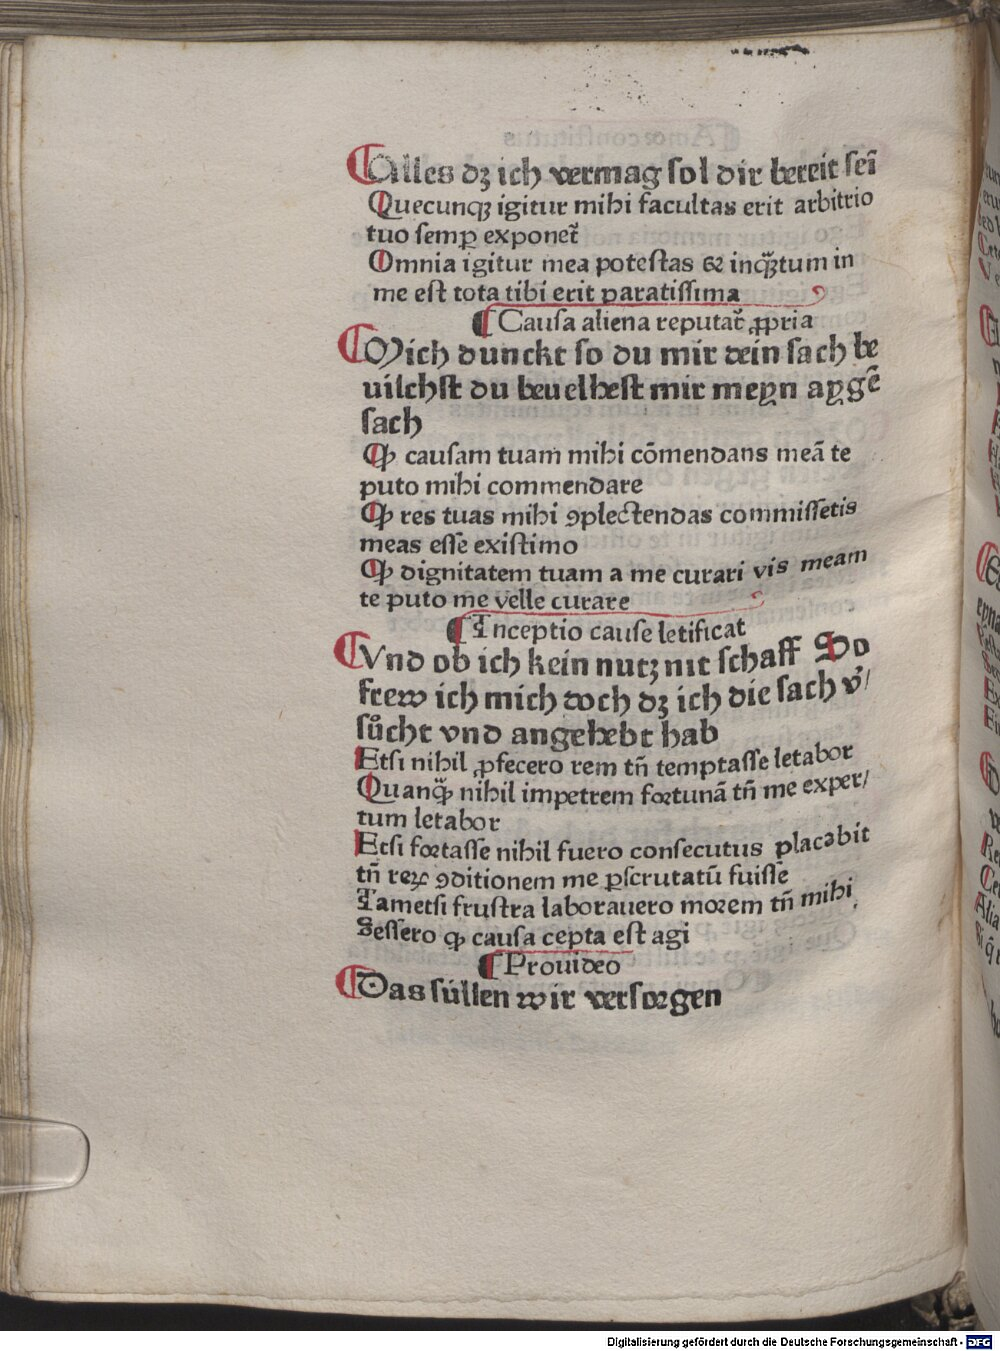 Alles dꝫ ich vermag sol dir bereit sei̅
Quecunqꝫ igitur mihi facultas erit arbitrio
tuo semꝑ exponet᷑
Omnia igitur mea potestas & inqꝫtum in
me est tota tibi erit paratissima
¶ Causa aliena reputat᷑ ꝓpria
Mich dunckt so du mir dein sach be
uilchst du beuelhest mir meyn aygē
sach
Ꝙ causam tuam mihi cōmendans meā te
puto mihi commendare
Ꝙ res tuas mihi ꝯplectendas commissetis
meas esse existimo
Ꝙ dignitatem tuam a me curari vis meam
te puto me velle curare
¶ Inceptio cause letificat
Vnd ob ich kein nutz nit schaff So
frew ich mich doch dꝫ ich die sach v̓/
sůcht vnd angehebt hab
Etsi nihil ꝓfecero rem tn̄ temptasse letabor
Quanqꝫ nihil impetrem fortunā tn̄ me exper/
tum letabor
Etsi fortasse nihil fuero consecutus placebit
tn̄ reꝝ ꝯditionem me ꝑscrutatū fuisse
Tametsi frustra laborauero morem tn̄ mihi
gessero ꝙ causa cepta est agi
¶ Prouideo
Das süllen wir versorgen
Digitalisierung gefördert durch die Deutsche Forschungsgemeinschaft - DFG